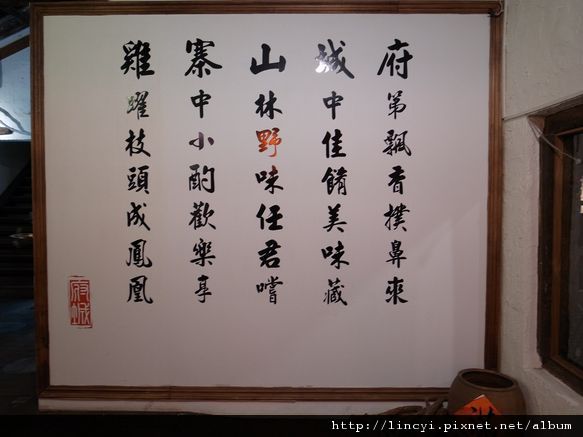 府第飄香撲鼻來
城中佳餚美味藏
山林野味任君嚐
寨中小酌歡樂享
雞躍枝頭成鳳凰
http://lincyi.pixnet.net/album